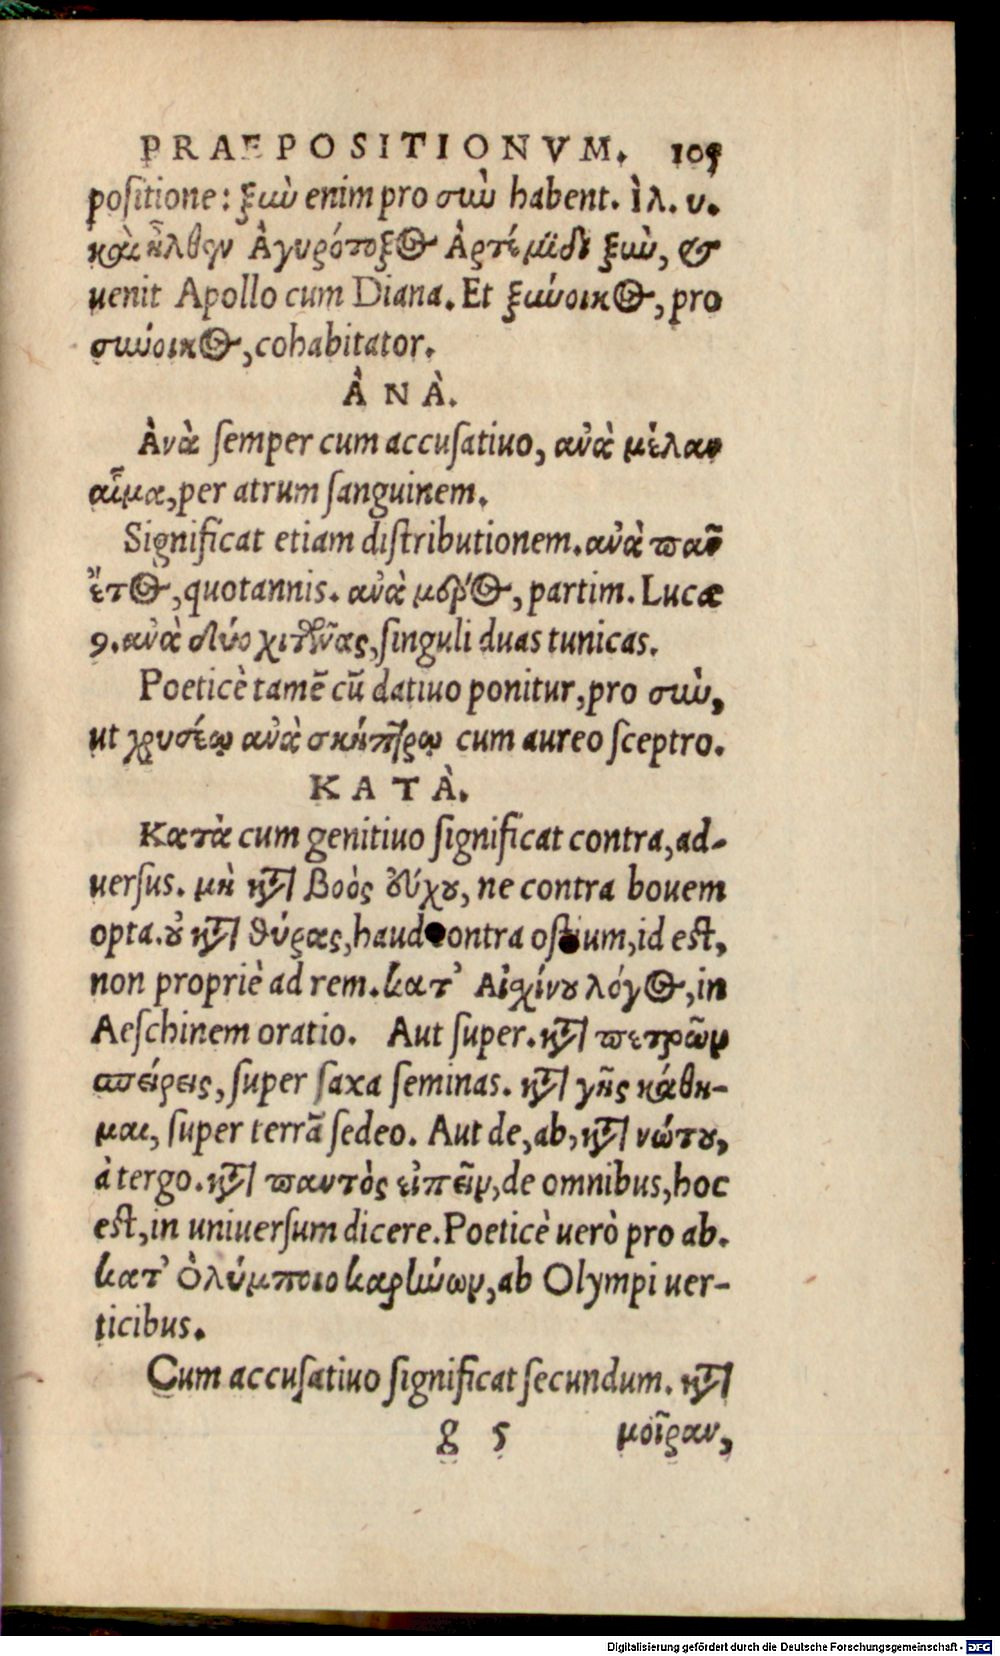 PRAEPOSITIONVM. 105
positione: ξὺν enim pro σὺν habent. ἰλ. υ.
καὶ ἦλθεν Ἀγυρότοξος Ἀρτέμιδι ξὺν, &
uenit Apollo cum Diana. Et ξύνοικος, pro
σύνοικος, cohabitator.
ἈΝᾺ.
Ἀνὰ semper cum accusatiuo, ἀνὰ μέλαν
αἷμα, per atrum sanguinem.
Significat etiam distributionem. ἀνὰ πᾶν
ἔτος, quotannis. ἀνὰ μέρος, partim. Lucæ
9. ἀνὰ δύο χιτῶνας, singuli duas tunicas.
Poeticè tamẽ cũ datiuo ponitur, pro σὺν,
ut χρυσέῳ ἀνὰ σκήπτρῳ cum aureo sceptro.
ΚΑΤᾺ.
Κατὰ cum genitiuo significat contra, ad-
uersus. μὴ κτ̀ βοὸς εύχου, ne contra bouem
opta. ὀυ κτ̀ θύρας, haud contra ostium, id est,
non propriè ad rem. κατ' Αἰχίνου λόγος, in
Aeschinem oratio. Aut super. κτ̀ πετρῶν
σπείρεις, super saxa seminas. κτ̀ γῆς κάθη-
μαι, super terrã sedeo. Aut de, ab, κτ̀ νώτου,
à tergo. κτ̀ παντὸς εἰπεῖν, de omnibus, hoc
est, in uniuersum dicere. Poeticè uerò pro ab.
κατ' Ὀλύμποιο καρήνων, ab Olympi uer-
ticibus.
Cum accusatiuo significat secundum. κτ̀
g 5 μοῖραν,
Digitalisierung gefördert durch die Deutsche Forschungsgemeinschaft - DFG